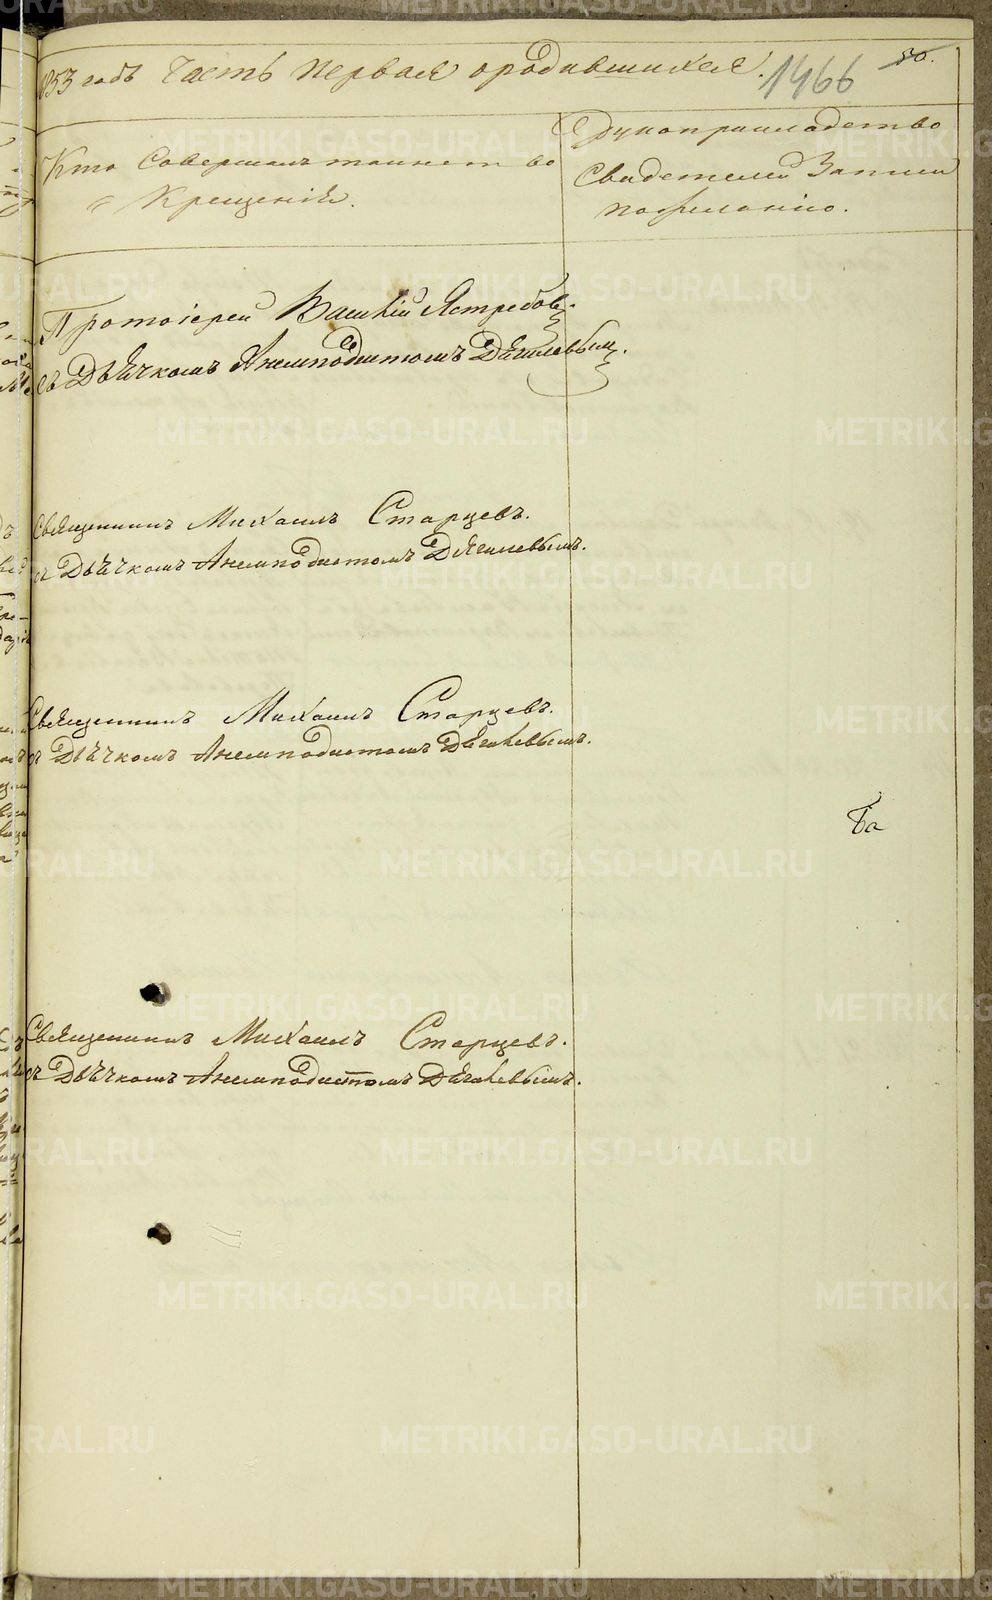 1853 годъ Часть первая ородившихся.
1466
50.
Кто Совершалъ таинство
Крещенія.
Рукоприкладство
Свидетелей Записи
по желанію.
Протоіерей Василій Ястребовъ.
съ Дьячкомъ Анемподистомъ Дягилевымъ.
Священникъ Михаилъ Старцевъ.
съ Дьячкомъ Анемподистомъ Дягилевымъ.
Священникъ Михаилъ Старцевъ.
съ Дьячкомъ Анемподистомъ Дягилевымъ.
Ба
Священникъ Михаилъ Старцевъ.
съ Дьячкомъ Анемподистомъ Дягилевымъ.
METRIKI.GASO-URAL.RU